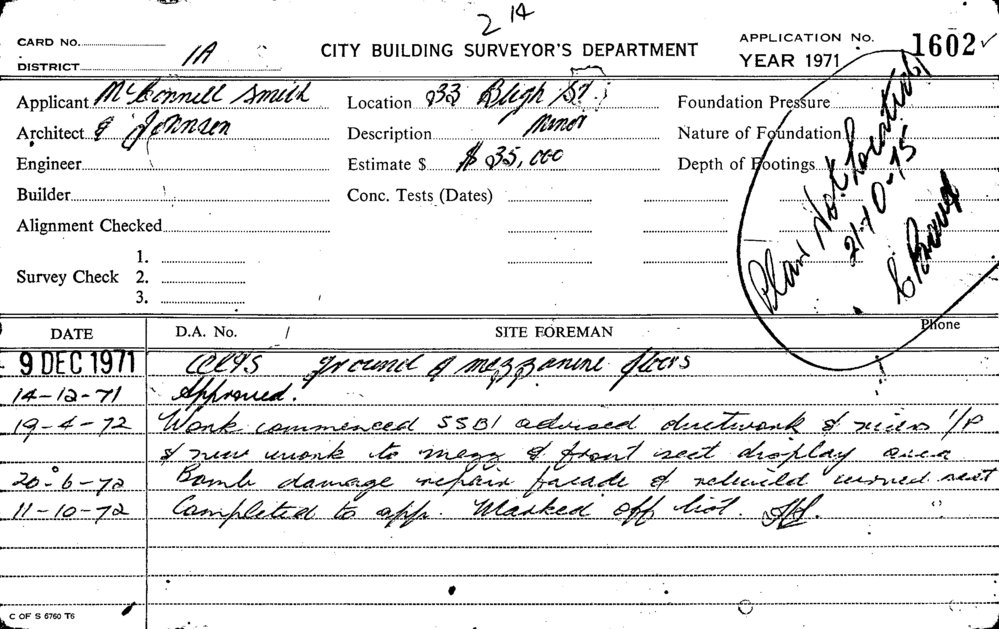 2 14
CARD No.
DISTRICT 1A
CITY BUILDING SURVEYOR'S DEPARTMENT
APPLICATION No. 1602 ✓
YEAR 1971
Applicant McConnell Smith
Architect & Johnson
Engineer
Builder
Alignment Checked
Survey Check
1.
2.
3.
Location 33 Bligh ST.
Description Minor
Estimate $ $ 35,000
Conc. Tests (Dates)
Foundation Pressure
Nature of Foundation
Depth of Footings
Plan Not
21-10-75
Phone
DATE D.A. No. / SITE FOREMAN
9 DEC 1971 ground & mezzanine floors
14-12-71 Approved.
19-4-72 Work commenced SSBI advised ductwork & risers I/P
& new work to mezz & front sect display area
20-6-72 Bomb damage repair facade & rebuild sect
11-10-72 Completed to app. Marked off list.
C OF S 6760 T6